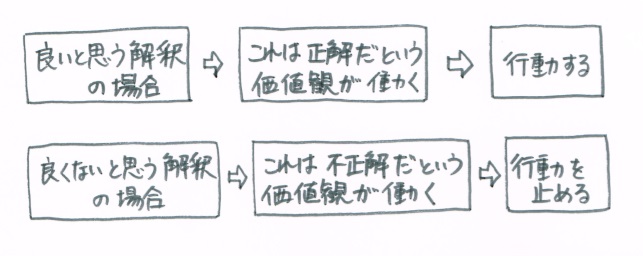 良いと思う解釈
の場合
これは正解だという
価値観が働く
行動する
良くないと思う解釈
の場合
これは不正解だという
価値観が働く
行動を
止める